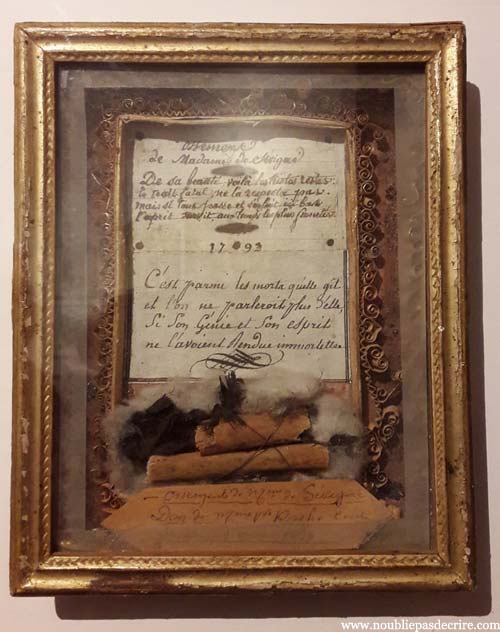 ossements
de Madame de Sévigné
De sa beauté voilà les tristes restes
le trait fatal ne la respecte pas
mais si tout passe et s'enfuit ici bas
l'esprit survit aux temps les plus funestes
1793
C'est parmi les morts qu'elle gît
et l'on ne parleroit plus d'elle,
Si Son Génie et Son esprit
ne l'avoient Rendue immortelle
ossements de Mme de Sévigné
Don de
www.noubliepasdecrire.com